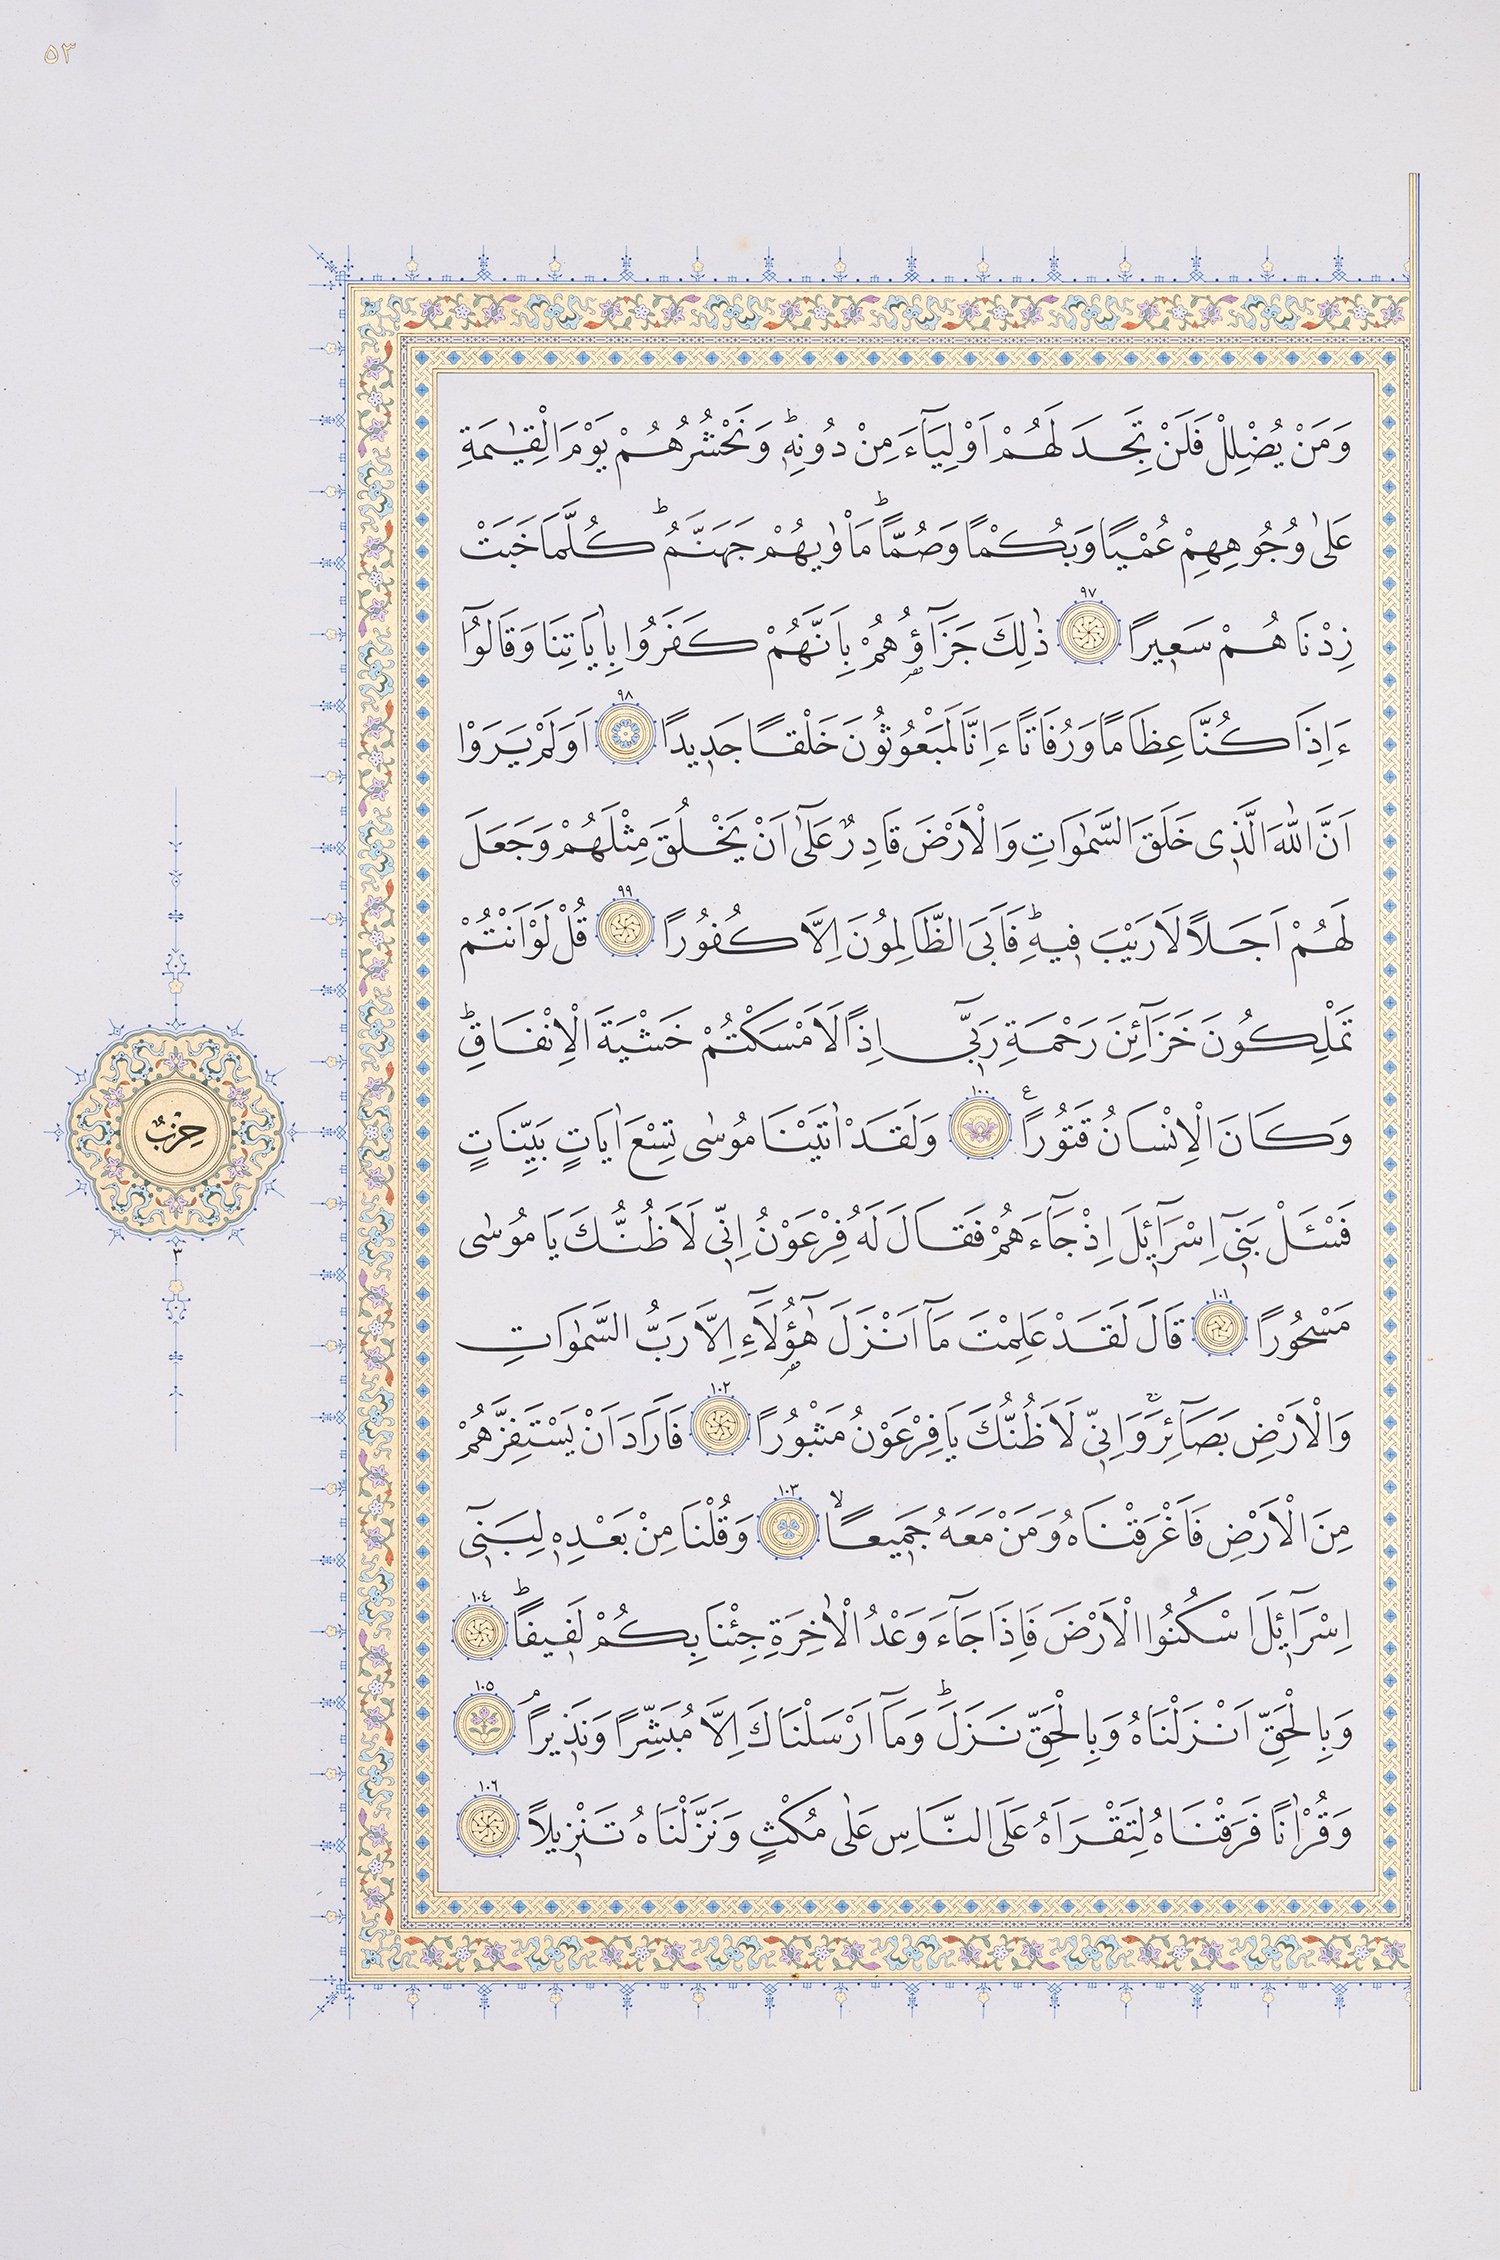 ٥٣
وَمَنْ يُضْلِلْ فَلَنْ تَجِدَ لَهُمْ اَوْلِيَٓاءَ مِنْ دُونِهٖؕ وَنَحْشُرُهُمْ يَوْمَ الْقِيٰمَةِ
عَلٰى وُجُوهِهِمْ عُمْيًا وَبُكْمًا وَصُمًّاؕ مَاْوٰيهُمْ جَهَنَّمُؕ كُلَّمَا خَبَتْ
زِدْنَاهُمْ سَعٖيرًا ٩٧ ذٰلِكَ جَزَٓاؤُ۬هُمْ بِاَنَّهُمْ كَفَرُوا بِاٰيَاتِنَا وَقَالُٓوا
ءَاِذَا كُنَّا عِظَامًا وَرُفَاتًا ءَاِنَّا لَمَبْعُوثُونَ خَلْقًا جَدٖيدًا ٩٨ اَوَلَمْ يَرَوْا
اَنَّ اللّٰهَ الَّذٖى خَلَقَ السَّمٰوَاتِ وَالْاَرْضَ قَادِرٌ عَلٰٓى اَنْ يَخْلُقَ مِثْلَهُمْ وَجَعَلَ
لَهُمْ اَجَلًا لَا رَيْبَ فٖيهِؕ فَاَبَى الظَّالِمُونَ اِلَّا كُفُورًا ٩٩ قُلْ لَوْ اَنْتُمْ
تَمْلِكُونَ خَزَٓائِنَ رَحْمَةِ رَبّٖٓى اِذًا لَاَمْسَكْتُمْ خَشْيَةَ الْاِنْفَاقِؕ
وَكَانَ الْاِنْسَانُ قَتُورًاع ١٠٠ وَلَقَدْ اٰتَيْنَا مُوسٰى تِسْعَ اٰيَاتٍ بَيِّنَاتٍ
فَسْـَٔلْ بَنٖٓى اِسْرَٓائٖلَ اِذْ جَٓاءَهُمْ فَقَالَ لَهُ فِرْعَوْنُ اِنّٖى لَاَظُنُّكَ يَا مُوسٰى
مَسْحُورًا ١٠١ قَالَ لَقَدْ عَلِمْتَ مَٓا اَنْزَلَ هٰٓؤُ۬لَٓاءِ اِلَّا رَبُّ السَّمٰوَاتِ
وَالْاَرْضِ بَصَٓائِرَۚ وَاِنّٖى لَاَظُنُّكَ يَا فِرْعَوْنُ مَثْبُورًا ١٠٢ فَاَرَادَ اَنْ يَسْتَفِزَّهُمْ
مِنَ الْاَرْضِ فَاَغْرَقْنَاهُ وَمَنْ مَعَهُ جَمٖيعًاۙ ١٠٣ وَقُلْنَا مِنْ بَعْدِهٖ لِبَنٖٓى
اِسْرَٓائٖلَ اسْكُنُوا الْاَرْضَ فَاِذَا جَٓاءَ وَعْدُ الْاٰخِرَةِ جِئْنَا بِكُمْ لَفٖيفًاؕ ١٠٤
وَبِالْحَقِّ اَنْزَلْنَاهُ وَبِالْحَقِّ نَزَلَؕ وَمَٓا اَرْسَلْنَاكَ اِلَّا مُبَشِّرًا وَنَذٖيرًاۢ ١٠٥
وَقُرْاٰنًا فَرَقْنَاهُ لِتَقْرَاَهُ عَلَى النَّاسِ عَلٰى مُكْثٍ وَنَزَّلْنَاهُ تَنْزٖيلًا ١٠٦
حِزْبٌ
٣